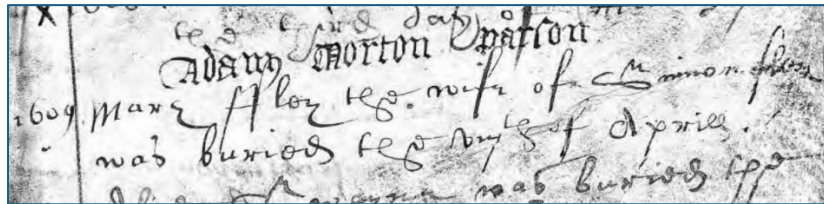 the third day
Adany Morton parson
1609 Mary ffley the wife of Simon ffley
was buried the viijth of Aprill.
was buried the